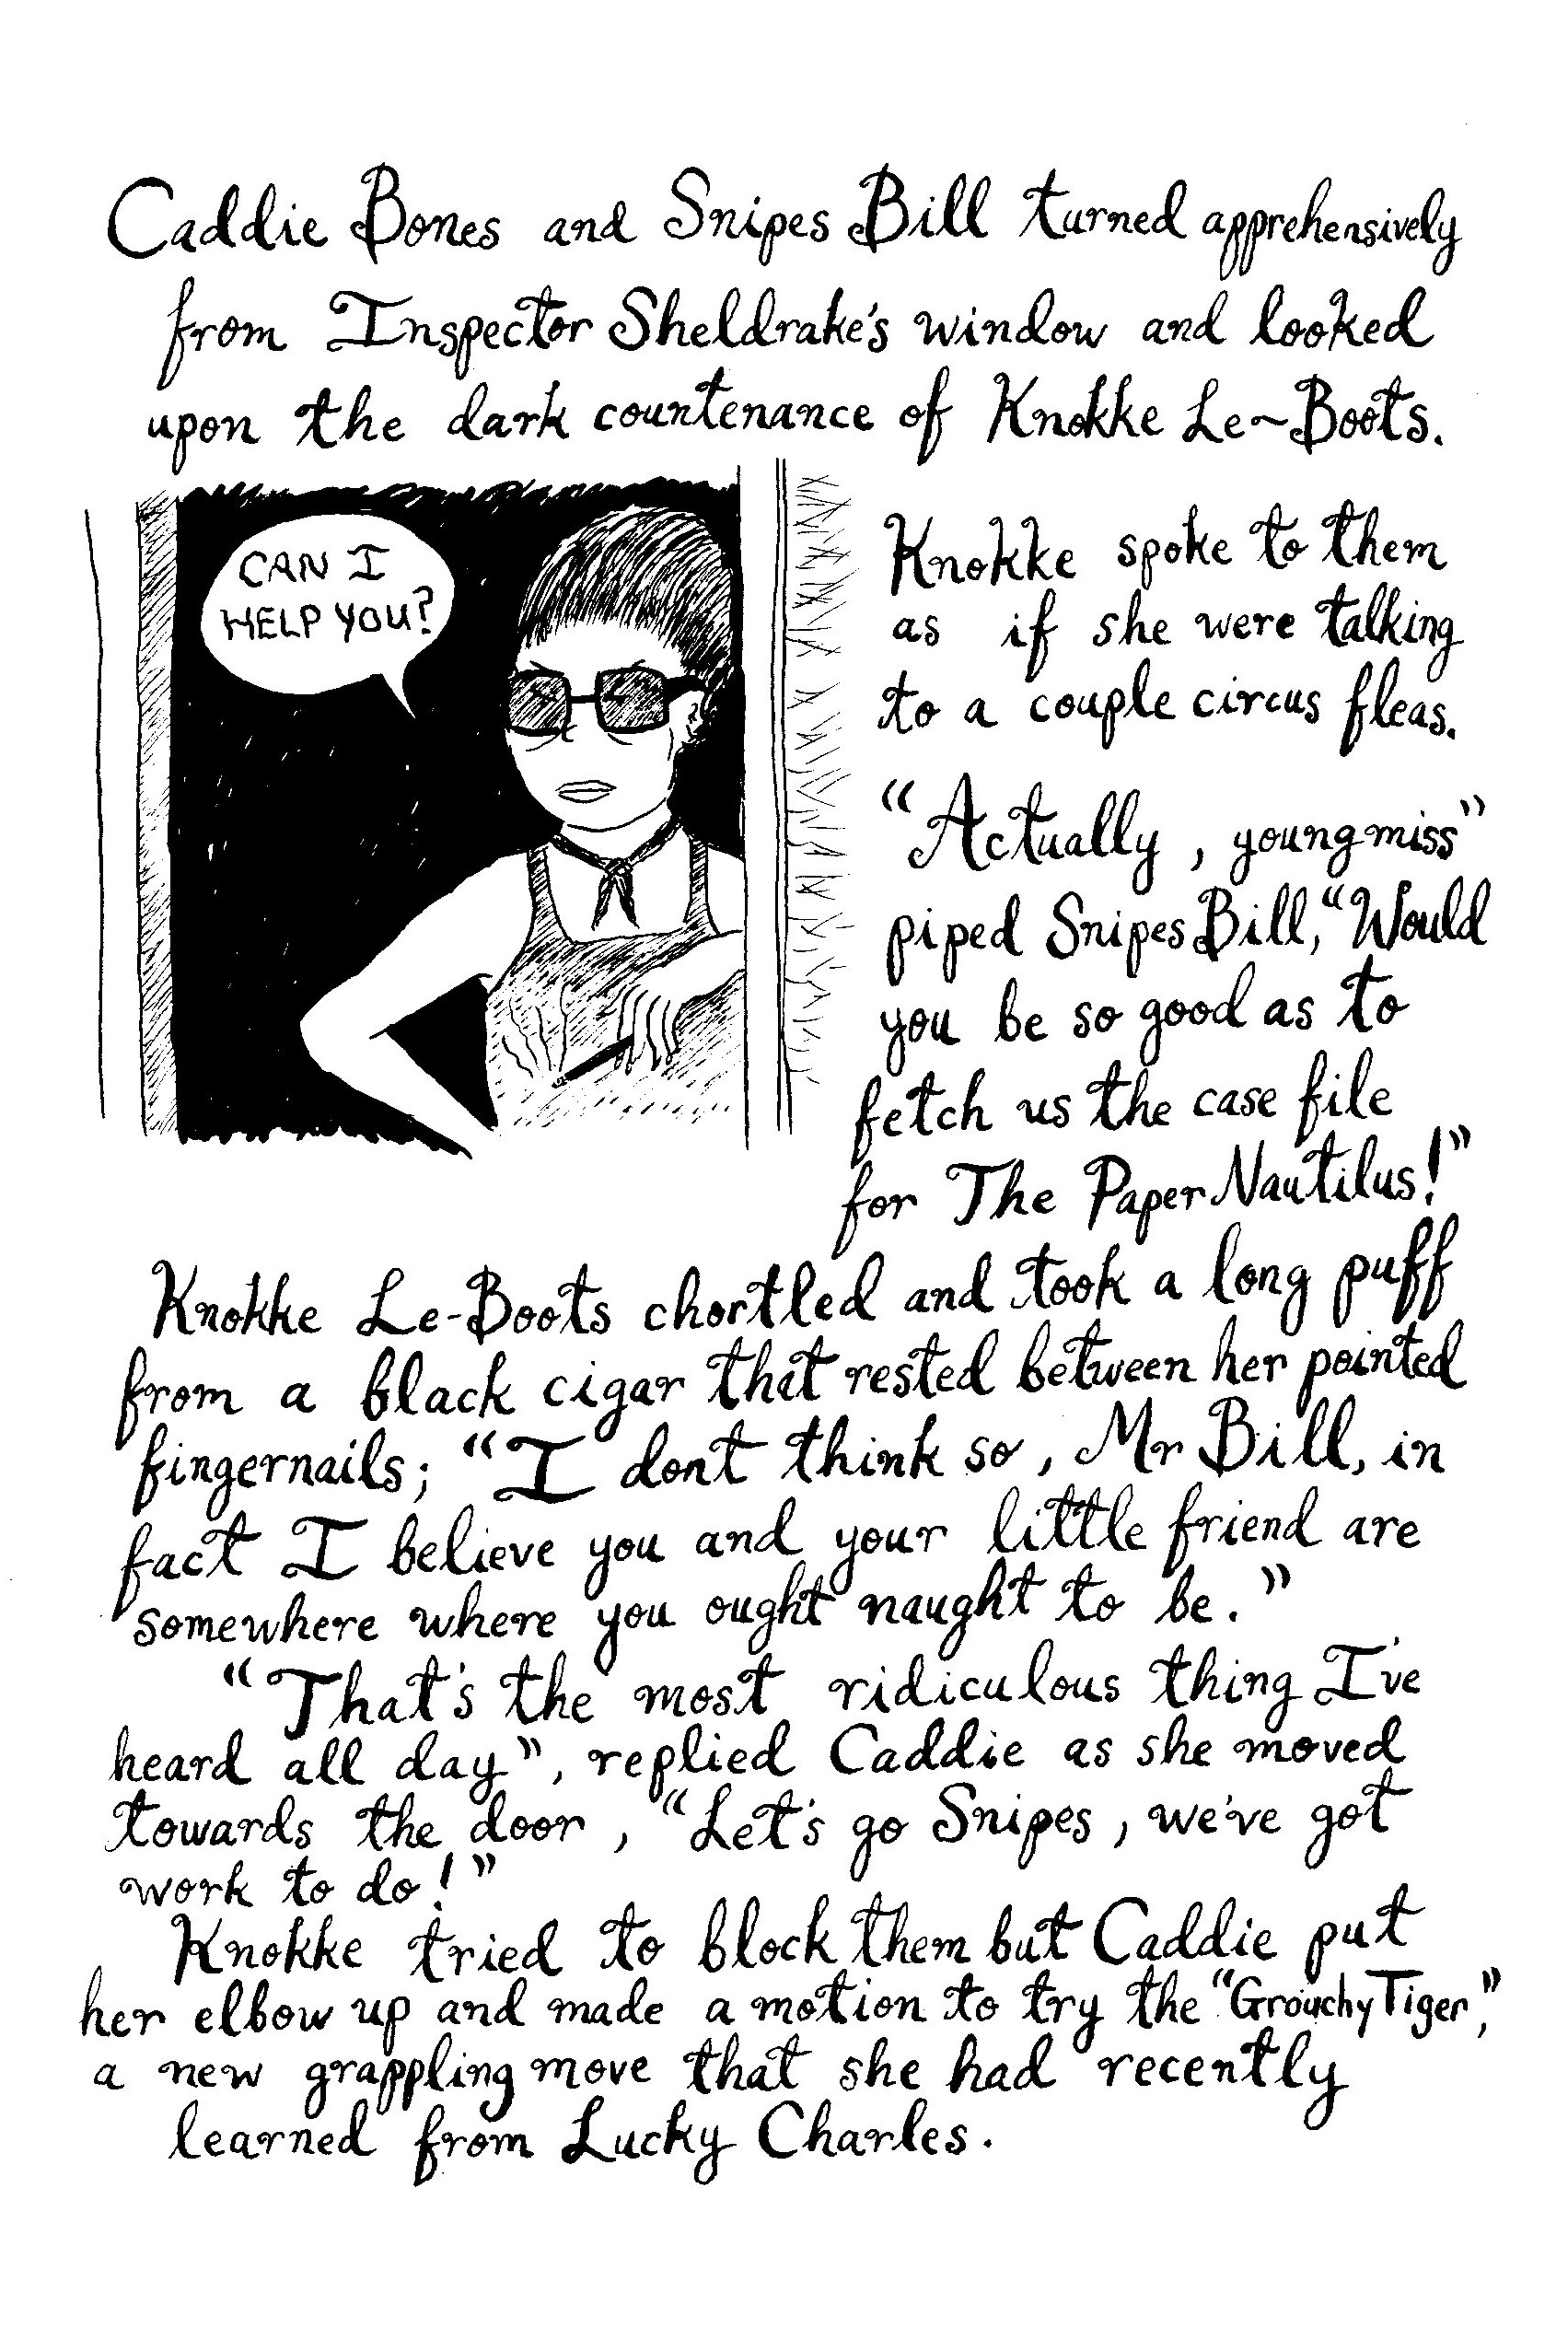 Caddie Bones and Snipes Bill turned apprehensively
from Inspector Sheldrake's window and looked
upon the dark countenance of Knokke Le~Boots.
CAN I
HELP YOU?
Knokke spoke to them
as if she were talking
to a couple circus fleas.
“Actually, young miss”
piped Snipes Bill, “Would
you be so good as to
fetch us the case file
for The Paper Nautilus!”
Knokke Le-Boots chortled and took a long puff
from a black cigar that rested between her pointed
fingernails; “I dont think so, Mr Bill, in
fact I believe you and your little friend are
somewhere where you ought naught to be.”
“That's the most ridiculous thing I've
heard all day”, replied Caddie as she moved
towards the door, “Let's go Snipes, we've got
work to do!”
Knokke tried to block them but Caddie put
her elbow up and made a motion to try the “Grouchy Tiger,”
a new grappling move that she had recently
learned from Lucky Charles.